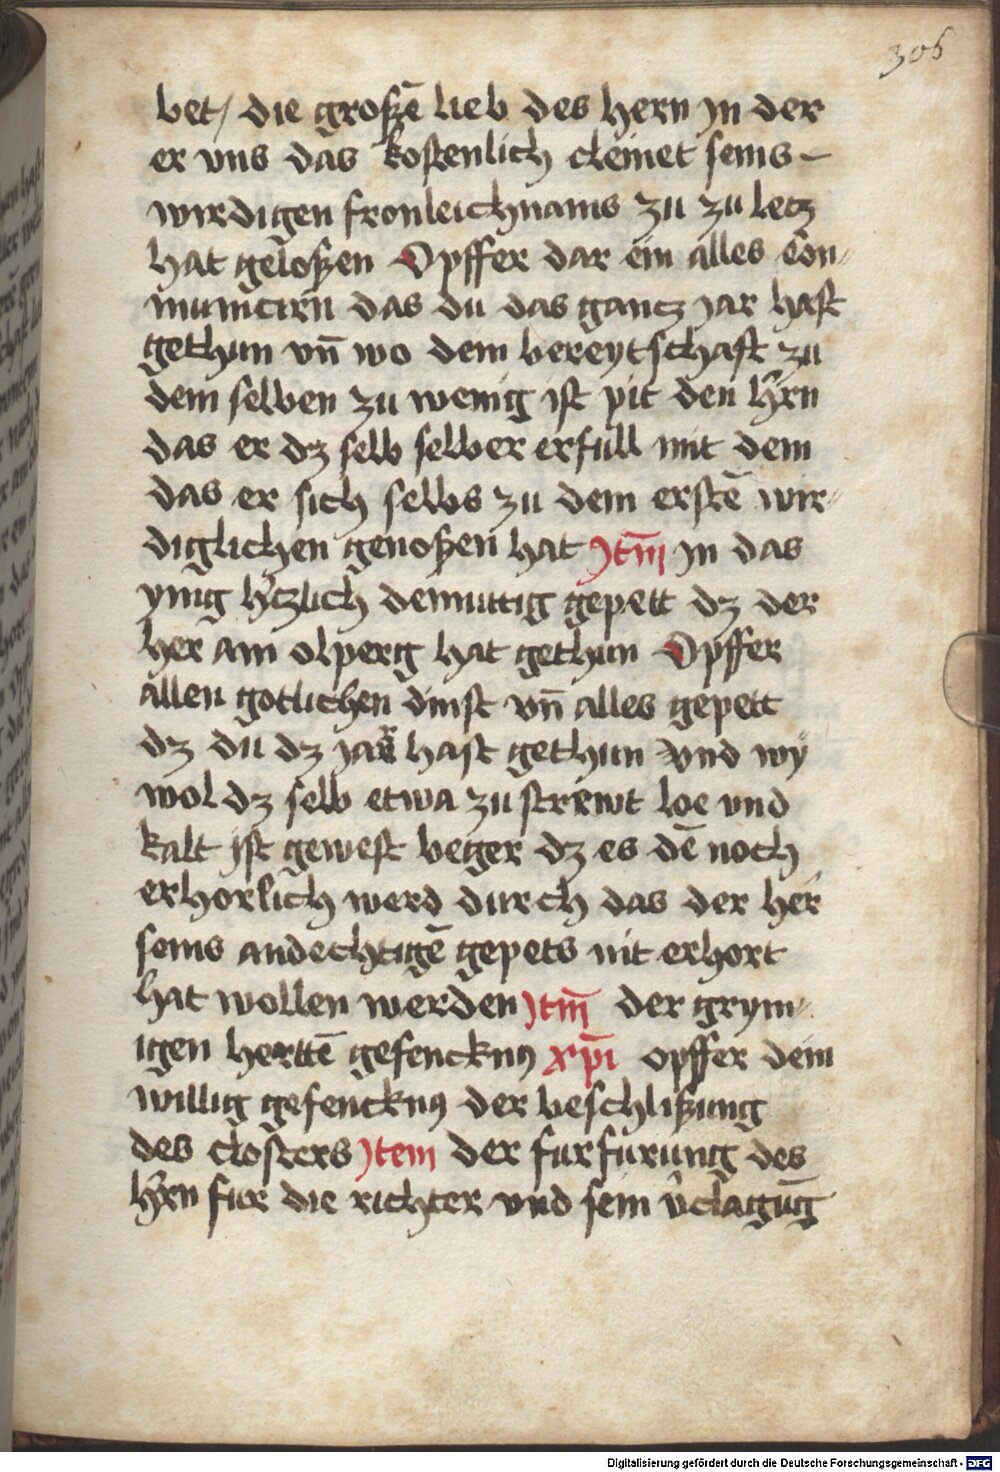 306
bet / die großē lieb des hern jn der
er vns das kostenlich cleinet seins –
wirdigen fronleichnams zu zu letz
hat geloßen Opffer dar ein alles con⸗
municirn das du das gantz jar hast
gethun vn̄ wo dein bereytschaft zu
dem selben zu wenig ist pit den hẻrn
das er dz selb selber erfull mit dem
das er sich selbs zu dem erstē wir⸗
diglichen genoßen hat Jtm̄ jn das
ynig hẻtzlich demuttig gepett dz der
her am olperg hat gethun Opffer
allen gotlichen dinst vn̄ alles gepett
dz du dz jar hast gethun vnd wy
wol dz selb etwa zu strewt loe vnd
kalt jst gewest beger dz es dē noch
erhorlich werd durch das der her
seins andechtigē gepets nit erhort
hat wollen werden Jtm̄ der grym⸗
igen herttē gefencknꝰ xp̄i opffer dein
willig gefencknꝰ der beschlißung
des closters Jtem der furfurung des
hẻrn fur die richter vnd sein v̉clagūg
Digitalisierung gefördert durch die Deutsche Forschungsgemeinschaft - DFG